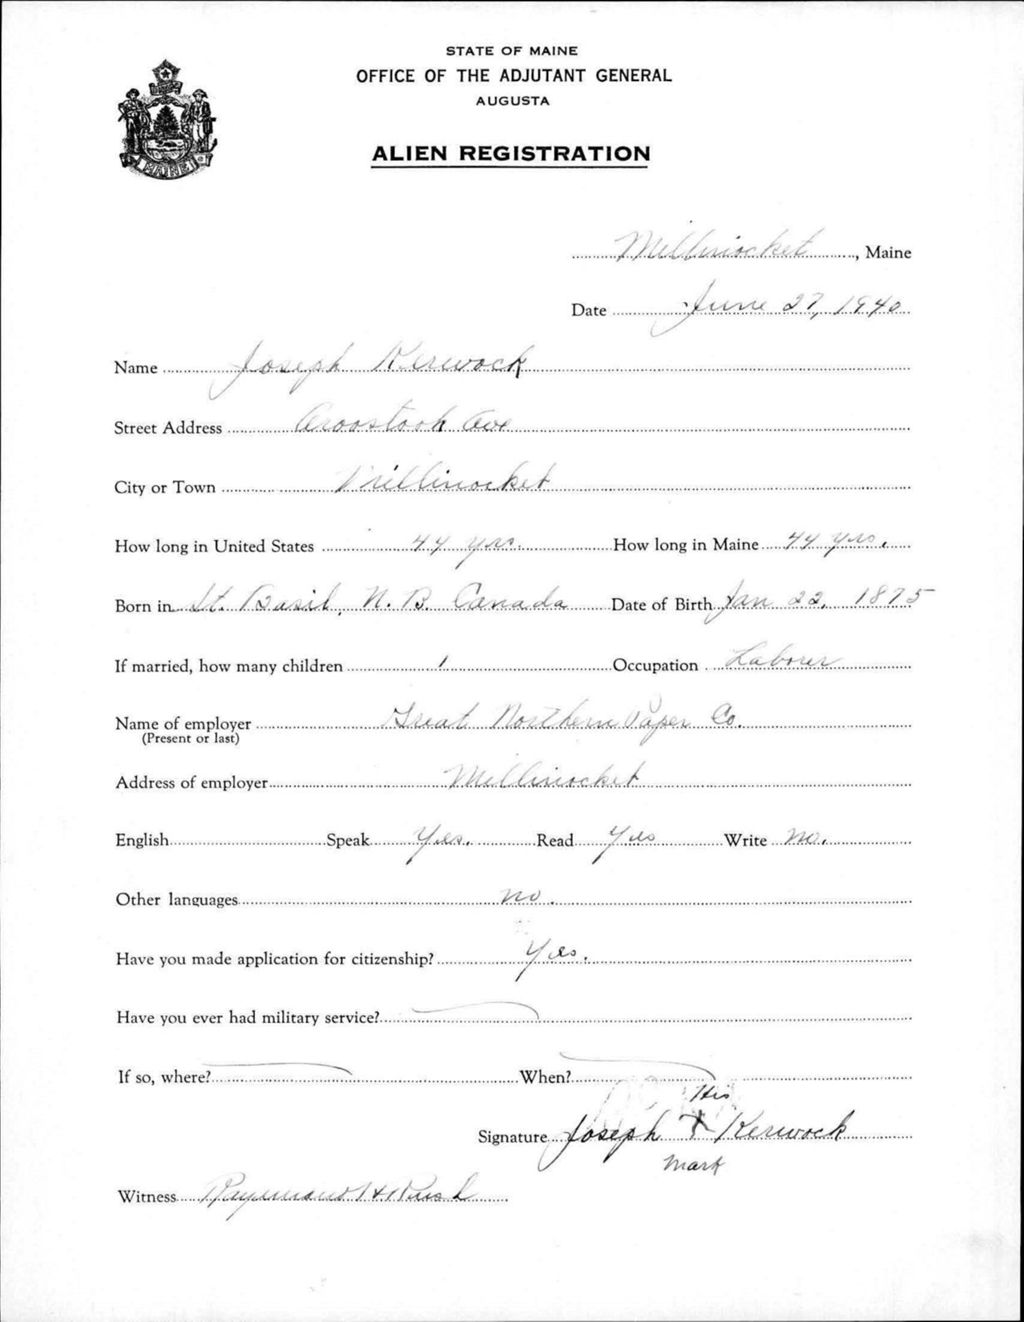 STATE OF MAINE
OFFICE OF THE ADJUTANT GENERAL
AUGUSTA
ALIEN REGISTRATION
MAINE
Millinocket, Maine
Date June 27, 1940
Name Joseph Kerwock
Street Address Aroostook Ave
City or Town Millinocket
How long in United States 44 yrs. How long in Maine 44 yrs.
Born in St. Basil, N. B. Canada Date of Birth Jan 22, 1875
If married, how many children 1 Occupation Laborer
Name of employer Great Northern Paper Co.
(Present or last)
Address of employer Millinocket
English Speak Yes. Read Yes Write no.
Other languages no.
Have you made application for citizenship? Yes.
Have you ever had military service?
If so, where? When?
His
Signature Joseph X Kerwock
mark
Witness Raymond H Rush